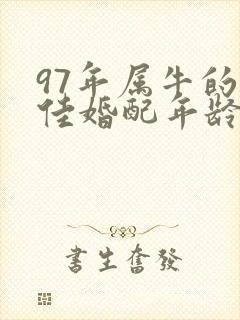 97年属牛的
佳婚配年龄
書生奮發